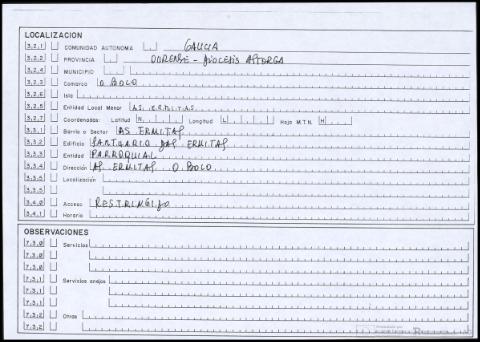 LOCALIZACION
3.2.1 COMUNIDAD AUTONOMA GALICIA
3.2.2 PROVINCIA OURENSE - DIOCESIS ASTORGA
3.2.4 MUNICIPIO
3.2.3 Comarca O BOLO
3.2.6 Isla
3.2.5 Entidad Local Menor AS ERMITAS
3.2.7 Coordenadas: Latitud N. Longitud L. Hoja M.T.N. H
3.3.1 Barrio o Sector AS ERMITAS
3.3.2 Edificio SANTUARIO DAS ERMITAS
3.3.3 Entidad PARROQUIAL
3.3.4 Dirección AS ERMITAS O BOLO
3.3.5 Localización
3.3.5
3.4.0 Acceso RESTRINGIDO
3.4.1 Horario
OBSERVACIONES
7.3.0 Servicios
7.3.0
7.3.0
7.3.1 Servicios anejos
7.3.1
7.3.1
7.3.2 Otros
7.3.2